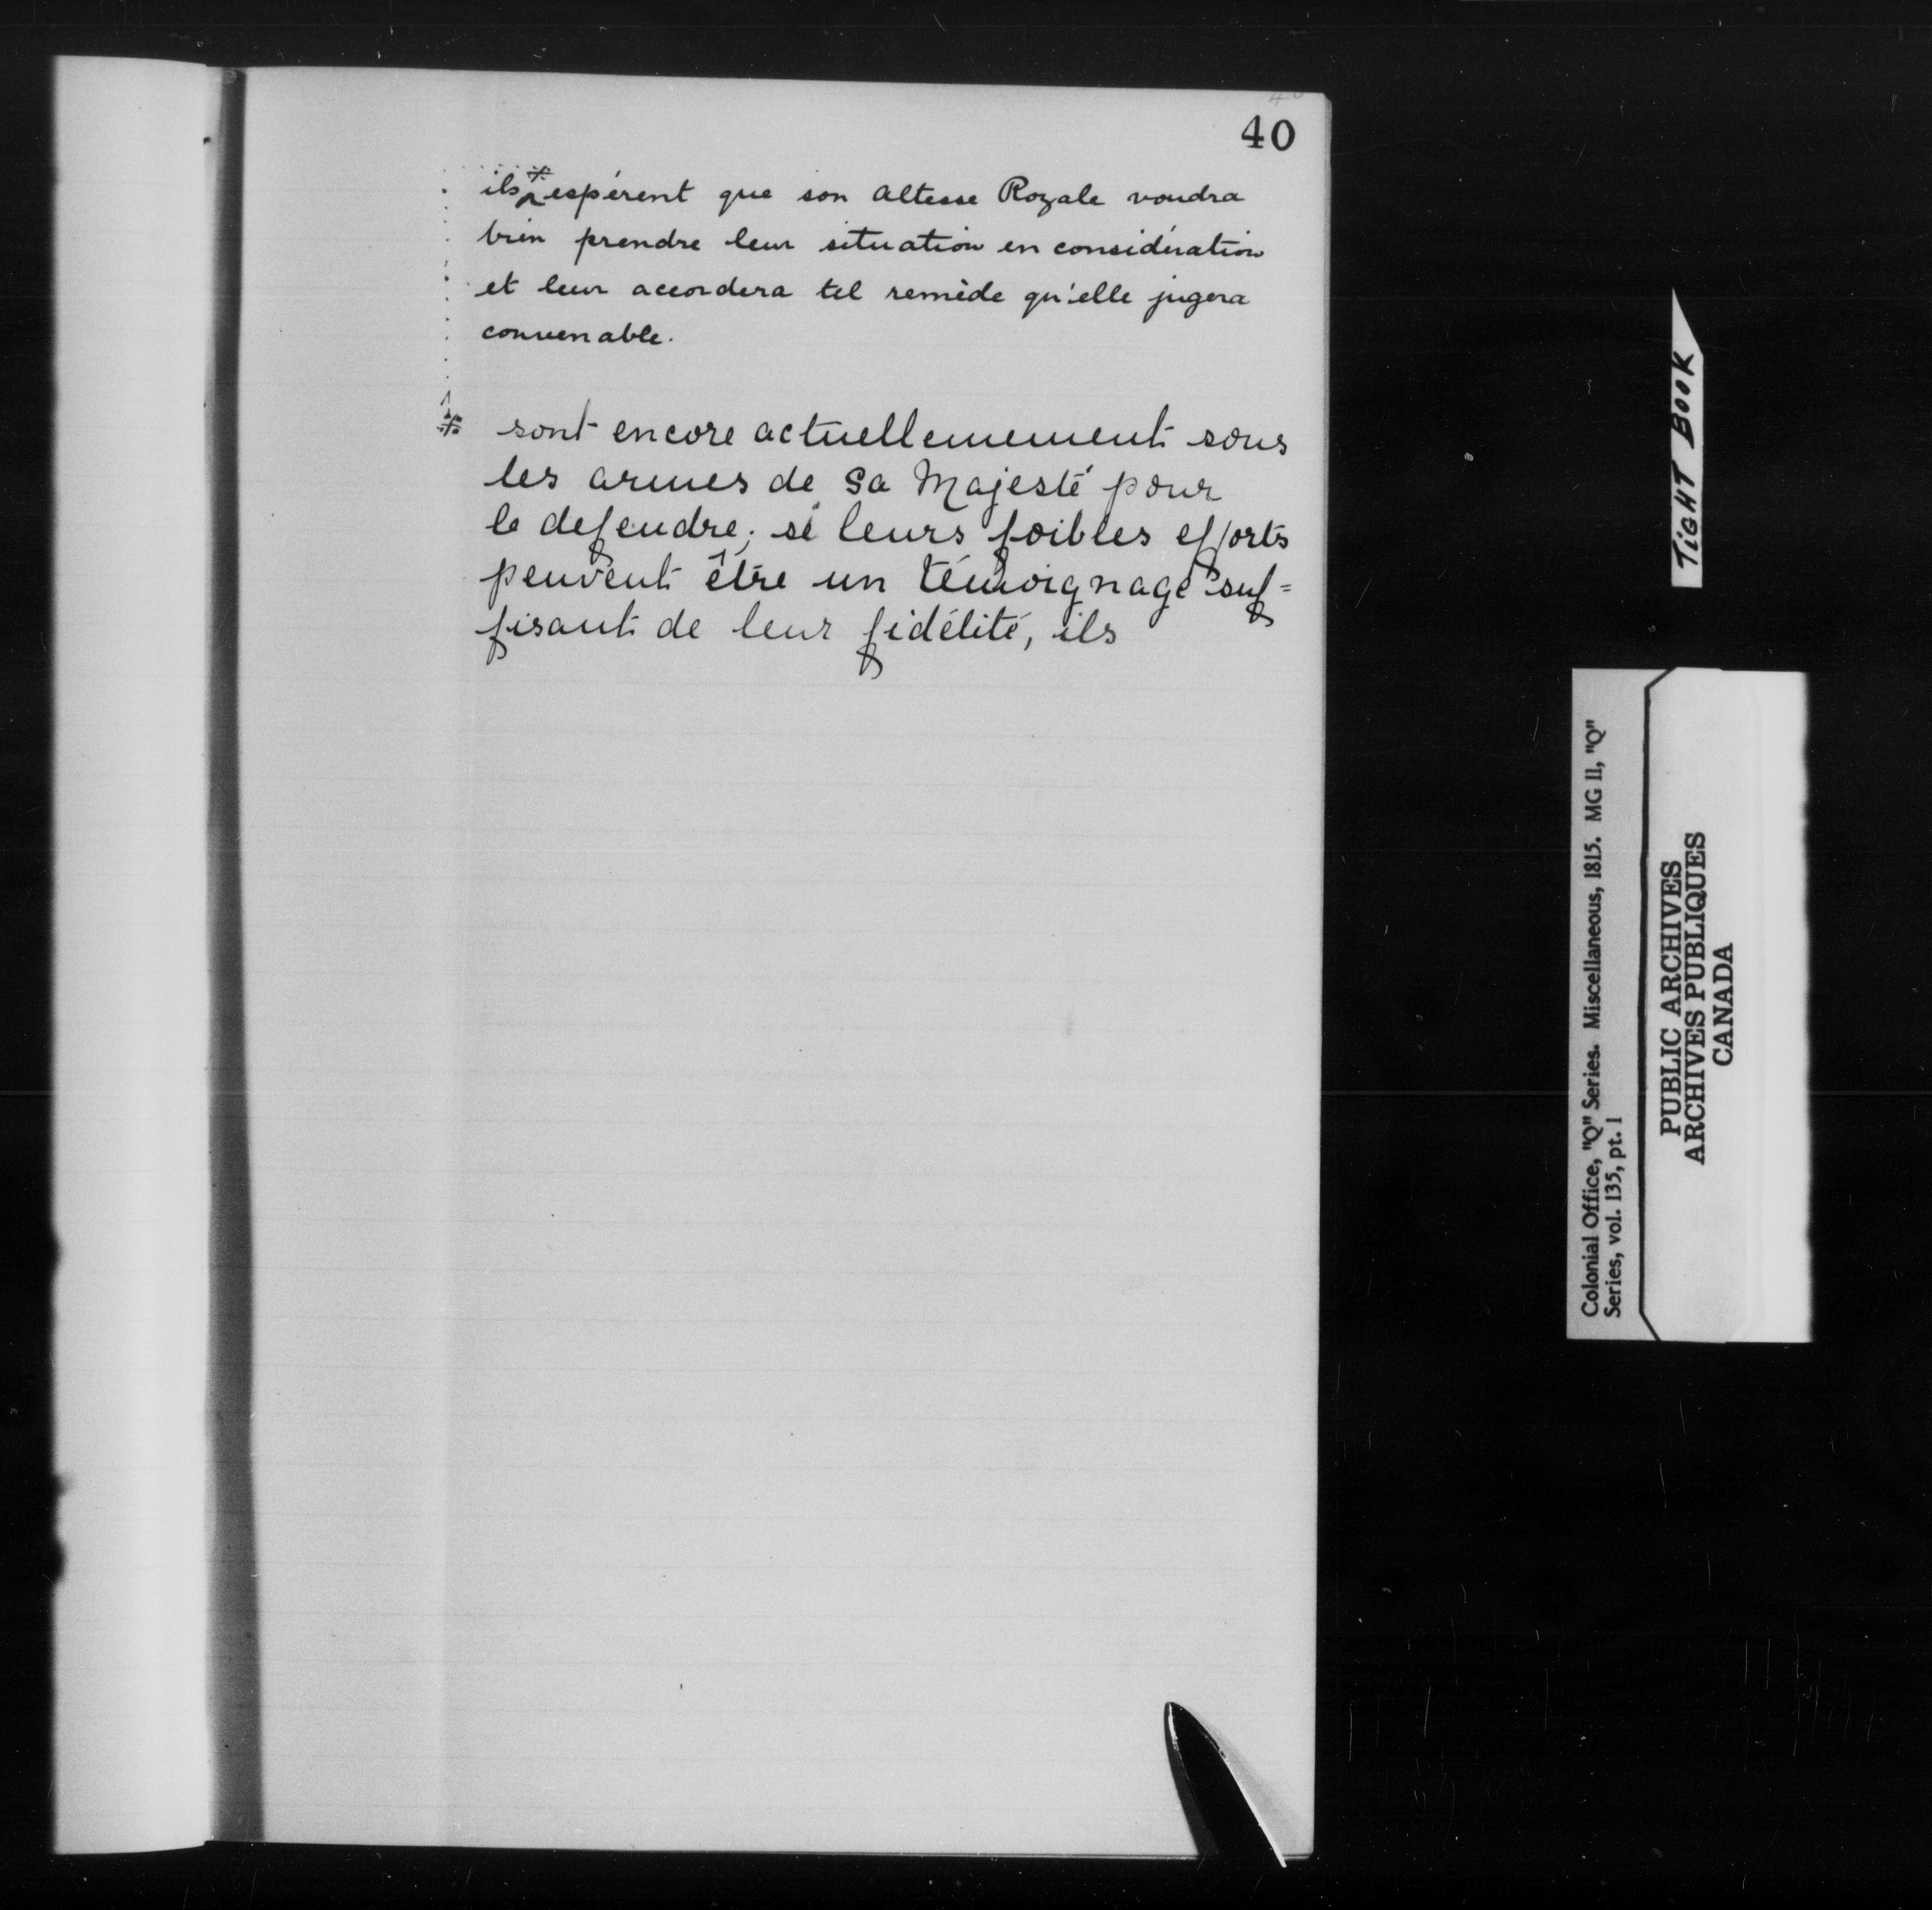 40
ils * espérent que son Altesse Royale voudra
bien prendre leur situation en considération
et leur accordera tel remède qu'elle jugera
convenable.
* sont encore actuellemement sous
les armes de Sa Majesté pour
le defendre; si leurs foibles efforts
peuvent être un témoignage suf=
fisant de leur fidélité, ils
TIGHT BOOK
Colonial Office, "Q" Series. Miscellaneous, 1815. MG 11, "Q"
Series, vol. 135, pt. 1
PUBLIC ARCHIVES
ARCHIVES PUBLIQUES
CANADA